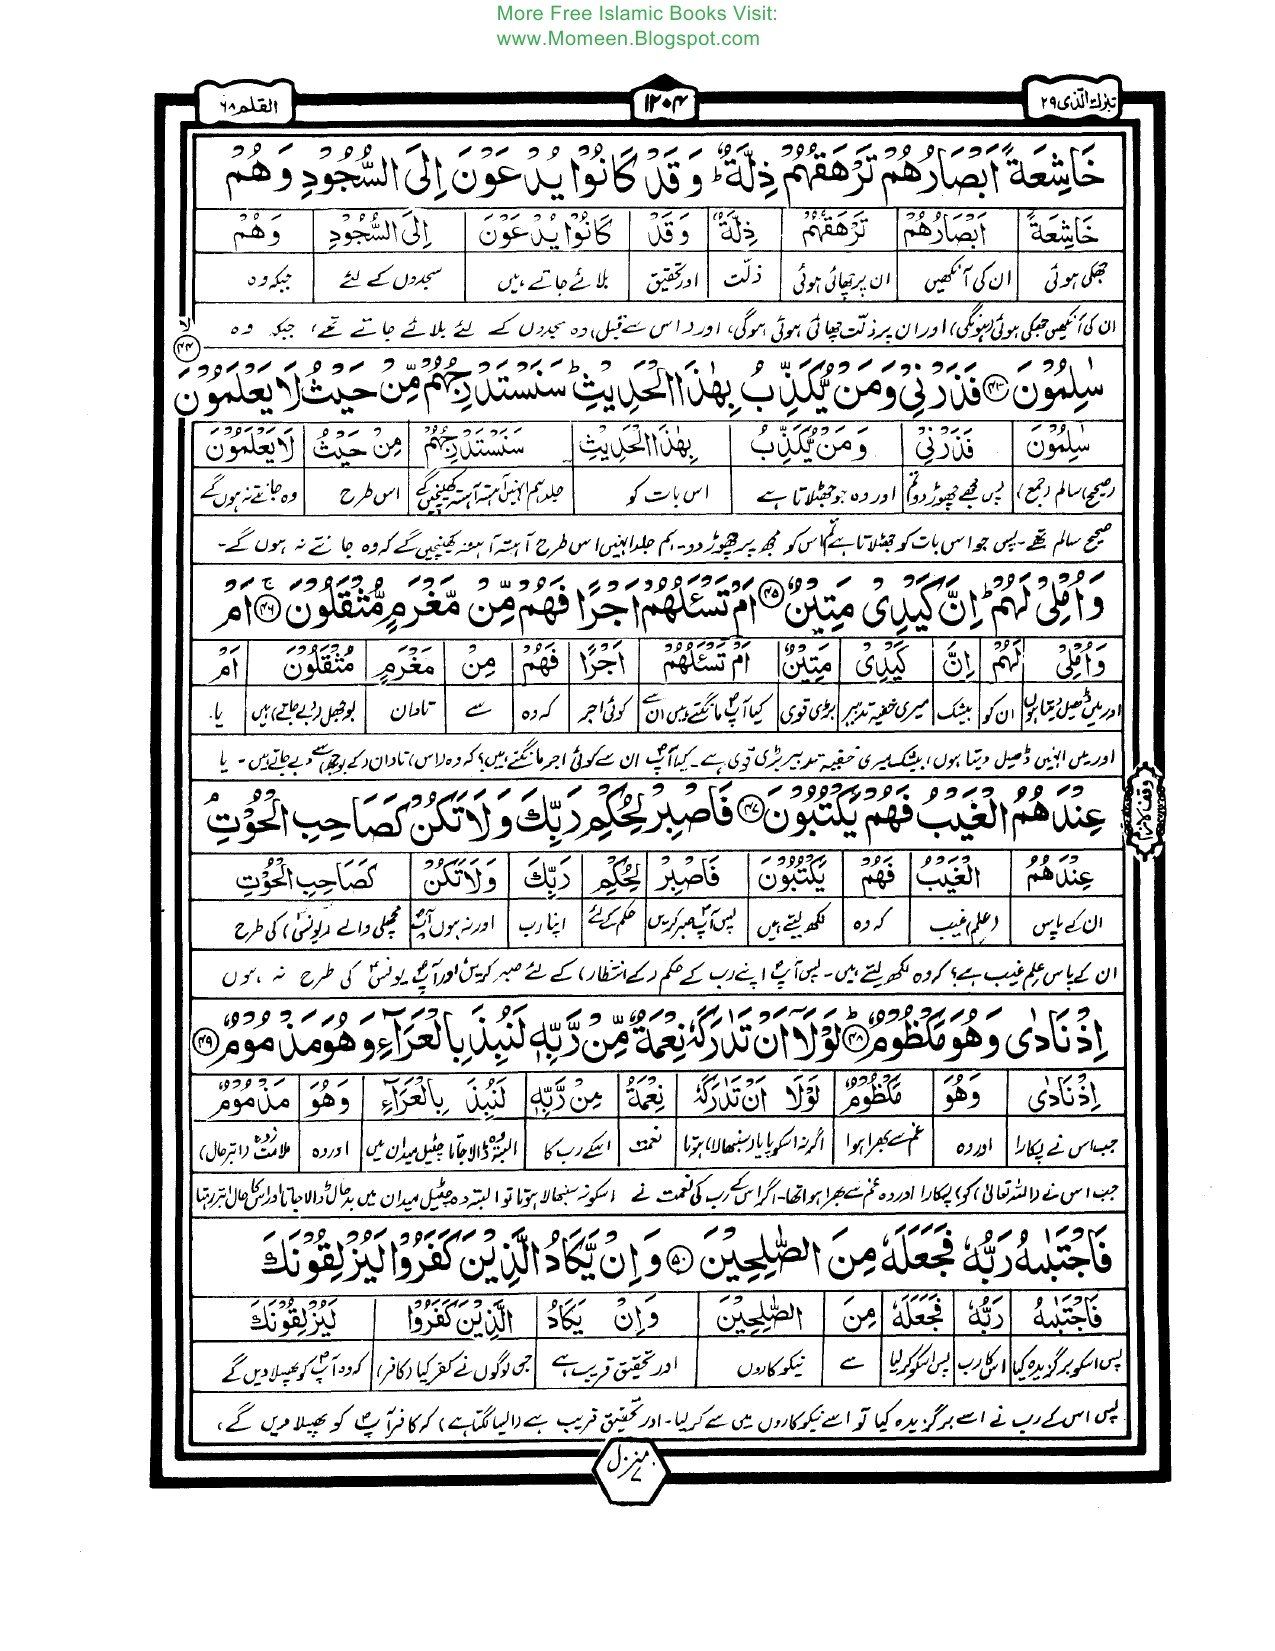 More Free Islamic Books Visit:
www.Momeen.Blogspot.com
تبٰرك الّذی ۲۹
۱۲۰۴
القلم ۶۸
خَاشِعَةً اَبْصَارُهُمْ تَرْهَقُهُمْ ذِلَّةٌ ؕ وَقَدْ كَانُوْا يُدْعَوْنَ اِلَى السُّجُوْدِ وَهُمْ
خَاشِعَةً اَبْصَارُهُمْ تَرْهَقُهُمْ ذِلَّةٌ وَقَدْ كَانُوْا يُدْعَوْنَ اِلَى السُّجُوْدِ وَهُمْ
جھکی ہوئی ان کی آنکھیں ان پر چھائی ہوئی ذلت اور تحقیق بلائے جاتے ہیں سجدوں کے لئے جبکہ وہ
ان کی آنکھیں جھکی ہوئی (ہونگی) اور ان پر ذلت چھائی ہوئی ہوگی، اور (اس سے قبل) وہ سجدوں کے لئے بلائے جاتے تھے، جبکہ وہ
سٰلِمُوْنَ ۴۳ فَذَرْنِيْ وَمَنْ يُّكَذِّبُ بِهٰذَا الْحَدِيْثِ ؕ سَنَسْتَدْرِجُهُمْ مِّنْ حَيْثُ لَا يَعْلَمُوْنَ ۴۴ لا
سٰلِمُوْنَ فَذَرْنِيْ وَمَنْ يُّكَذِّبُ بِهٰذَا الْحَدِيْثِ سَنَسْتَدْرِجُهُمْ مِنْ حَيْثُ لَا يَعْلَمُوْنَ
(صحیح) سالم (جمع) پس مجھے چھوڑ دو تم اور وہ جو جھٹلاتا ہے اس بات کو جلد ہم انہیں آہستہ آہستہ کھینچیں گے اس طرح وہ جانتے نہ ہوں گے
صحیح سالم تھے۔ پس جو اس بات کو جھٹلاتا ہے تم اس کو مجھ پر چھوڑ دو۔ ہم جلد انہیں اس طرح آہستہ آہستہ کھینچیں گے کہ وہ جانتے نہ ہوں گے۔
وَاُمْلِيْ لَهُمْ ؕ اِنَّ كَيْدِيْ مَتِيْنٌ ۴۵ اَمْ تَسْئَلُهُمْ اَجْرًا فَهُمْ مِّنْ مَّغْرَمٍ مُّثْقَلُوْنَ ۴۶ ج اَمْ
وَاُمْلِيْ لَهُمْ اِنَّ كَيْدِيْ مَتِيْنٌ اَمْ تَسْئَلُهُمْ اَجْرًا فَهُمْ مِنْ مَغْرَمٍ مُثْقَلُوْنَ اَمْ
اور میں ڈھیل دیتا ہوں ان کو بیشک میری خفیہ تدبیر بڑی قوی کیا آپؐ مانگتے ہیں ان سے کوئی اجر کہ وہ سے تاوان بوجھل (دبے جاتے) ہیں یا
اور میں انہیں ڈھیل دیتا ہوں، بیشک میری خفیہ تدبیر بڑی قوی ہے۔ کیا آپؐ ان سے کوئی اجر مانگتے ہیں؟ کہ وہ (اس) تاوان (کے بوجھ) سے دبے جاتے ہیں۔ یا
عِنْدَهُمُ الْغَيْبُ فَهُمْ يَكْتُبُوْنَ ۴۷ فَاصْبِرْ لِحُكْمِ رَبِّكَ وَلَا تَكُنْ كَصَاحِبِ الْحُوْتِ ۘ
وقف لازم
عِنْدَهُمُ الْغَيْبُ فَهُمْ يَكْتُبُوْنَ فَاصْبِرْ لِحُكْمِ رَبِّكَ وَلَا تَكُنْ كَصَاحِبِ الْحُوْتِ
ان کے پاس (علم) غیب کہ وہ لکھ لیتے ہیں پس آپؐ صبر کریں حکم کے لئے اپنا رب اور نہ ہوں آپؐ مچھلی والے (یونسؑ) کی طرح
ان کے پاس علمِ غیب ہے؟ کہ وہ لکھ لیتے ہیں۔ پس آپؐ اپنے رب کے حکم (کے انتظار) کے لئے صبر کریں اور آپؐ یونسؑ کی طرح نہ ہوں
اِذْ نَادٰى وَهُوَ مَكْظُوْمٌ ۴۸ ؕ لَوْلَا اَنْ تَدٰرَكَهٗ نِعْمَةٌ مِّنْ رَّبِّهٖ لَنُبِذَ بِالْعَرَآءِ وَهُوَ مَذْمُوْمٌ ۴۹
اِذْ نَادٰى وَهُوَ مَكْظُوْمٌ لَوْلَا اَنْ تَدٰرَكَهٗ نِعْمَةٌ مِنْ رَّبِّهٖ لَنُبِذَ بِالْعَرَآءِ وَهُوَ مَذْمُوْمٌ
جب اس نے پکارا اور وہ غم سے بھرا ہوا اگر نہ اسکو پا یا (سنبھالا) ہوتا نعمت اسکے رب کا البتہ وہ ڈالا جاتا چٹیل میدان میں اور وہ ملامت زدہ (ابتر حال)
جب اس نے (اللہ تعالیٰ) کو پکارا اور وہ غم سے بھرا ہوا تھا۔ اگر اس کے رب کی نعمت نے اسکو نہ سنبھالا ہوتا تو البتہ وہ چٹیل میدان میں بدحال ڈالا جاتا اور اس کا حال ابتر رہتا
فَاجْتَبٰىهُ رَبُّهٗ فَجَعَلَهٗ مِنَ الصّٰلِحِيْنَ ۵۰ وَاِنْ يَّكَادُ الَّذِيْنَ كَفَرُوْا لَيُزْلِقُوْنَكَ
فَاجْتَبٰىهُ رَبُّهٗ فَجَعَلَهٗ مِنَ الصّٰلِحِيْنَ وَاِنْ يَكَادُ الَّذِيْنَ كَفَرُوْا لَيُزْلِقُوْنَكَ
پس اسکو برگزیدہ کیا اس کا رب پس اسکو کر لیا سے نیکو کاروں اور تحقیق قریب ہے جن لوگوں نے کفر کیا (کافر) کہ وہ آپؐ کو پھسلا دیں گے
پس اس کے رب نے اسے برگزیدہ کیا تو اسے نیکوکاروں میں سے کر لیا۔ اور تحقیق قریب ہے (ایسا لگتا ہے) کہ کافر آپؐ کو پھسلا دیں گے،
منزل ۷